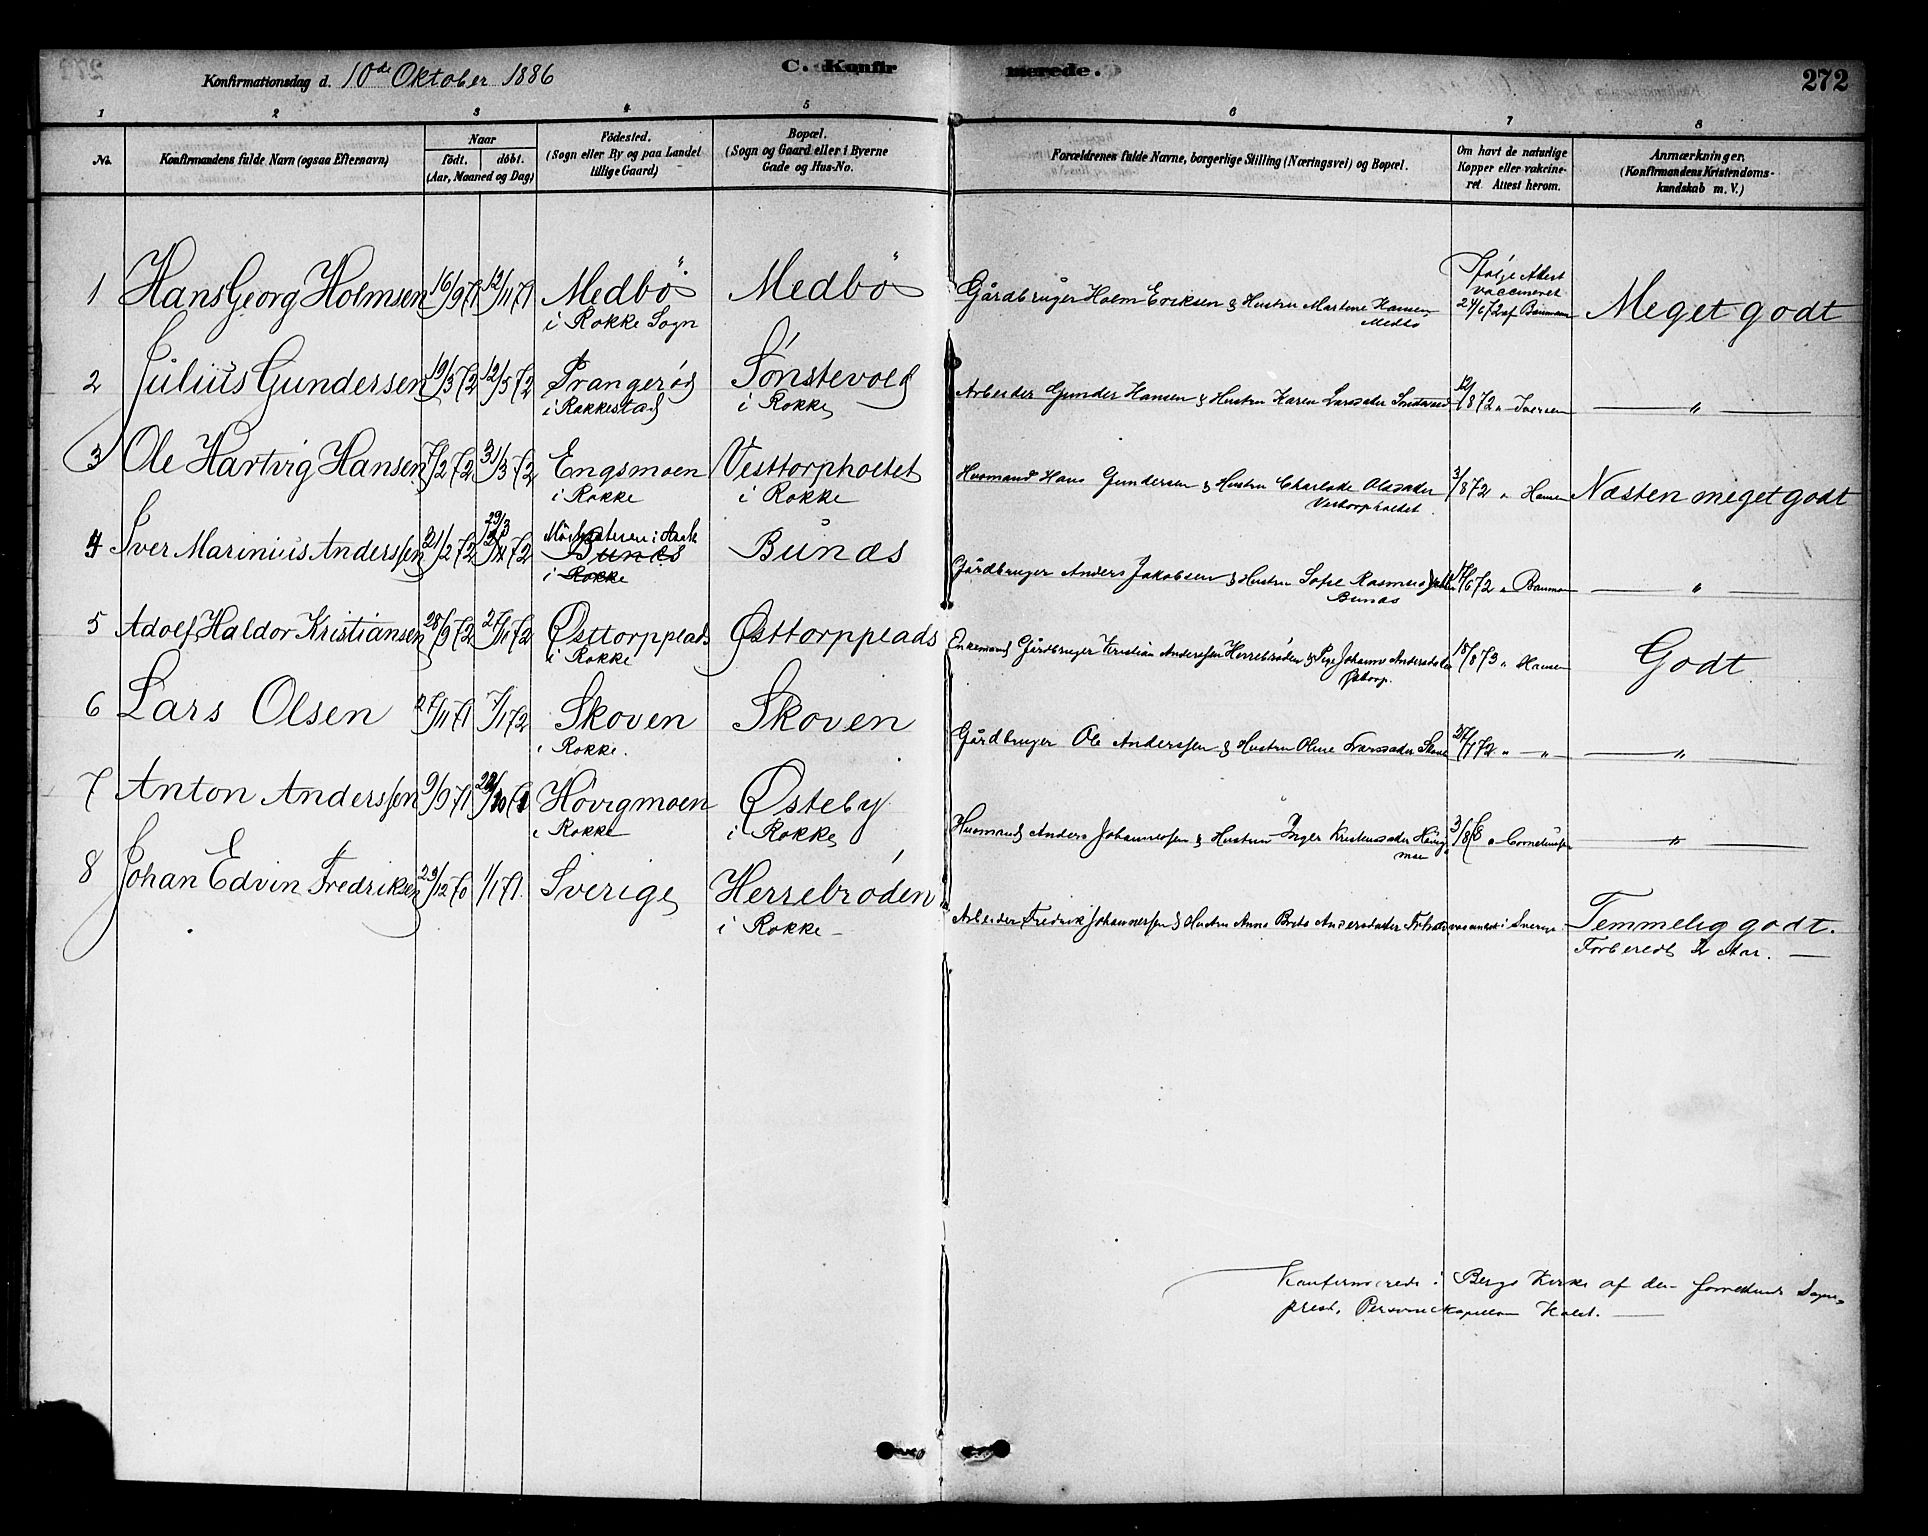 Konfirmationsdag d. 10de Oktober 1886 C. Konfirmerede. 272
1 2 3 4 5 6 7 8
No. Konfirmandens fulde Navn (ogsaa Efternavn) Naar født. døbt. (Aar, Maaned og Dag) Fødested. (Sogn eller By og paa Landet tillige Gaard) Bopæl. (Sogn og Gaard eller i Byerne Gade og Hus-No. Forældrenes fulde Navne, borgerlige Stilling (Næringsvei) og Bopæl. Om havt de naturlige Kopper eller vakcineret. Attest herom. Anmærkninger. (Konfirmandens Kristendomskundskab m. V.)
1 Hans Georg Holmsen 16/9 71 12/11 71 Medbø Medbø Gårdbruger Holm Eriksen & Hustru Martine Hansen Ifølge Attest vaccineret 24/6 72 af Baumann Meget godt
i Rokke Sogn Medbø
2 Julius Gundersen 19/3 72 12/5 72 Prangerød Sønstevold Arbeider Gunder Hansen & Hustru Karen Larsdater 12/8 72 " Iversen — " —
i Rakkestad i Rokke
3 Ole Hartvig Hansen 7/2 72 31/3 72 Engsmoen Vesttorpholtet Husmand Hans Gundersen & Hustru Charlotte Olsdater 3/8 72 " Hansen Næsten meget godt
i Rokke i Rokke Vestorpholtet
4 Iver Marinius Anderssen 21/2 72 29/3 72 i Aark Bunæs Bunæs Gårdbruger Anders Jakobsen & Hustru Sofie Rasmusdatter 17/6 72 " Bauman — " —
i Rokke Bunæs
5 Adolf Haldor Kristiansen 28/9 72 27/11 72 Østtorpplads Østtorpplads Enkemand Gårdbruger Kristian Anderssen Herrebrøden & Pige Johanne Andersdatter 18/8 73 " Hansen Godt
i Rokke Østtorp.
6 Lars Olsen 27/11 71 7/1 72 Skoven Skoven Gårdbruger Ole Anderssen & Hustru Oline Larsdater Skoven 27/7 72 " — " — — " —
i Rokke.
7 Anton Anderssen 9/9 71 22/10 71 Høvigmoen Østeby Husmand Anders Johannessen & Hustru Inger Kristensdater Høvig 3/8 " Corneliussen — " —
i Rokke i Rokke moen
8 Johan Edvin Fredriksen 29/12 70 1/1 71. Sverige Herrebrøden Arbeider Fredrik Johannessen & Hustru Anna Brita Andersdater i Sverige Temmelig godt.
i Rokke — Forberedt 2 Aar. —
Konfirmerede i Bergs Kirke af den Sogne-
prest, Personelkapellan Holst. —